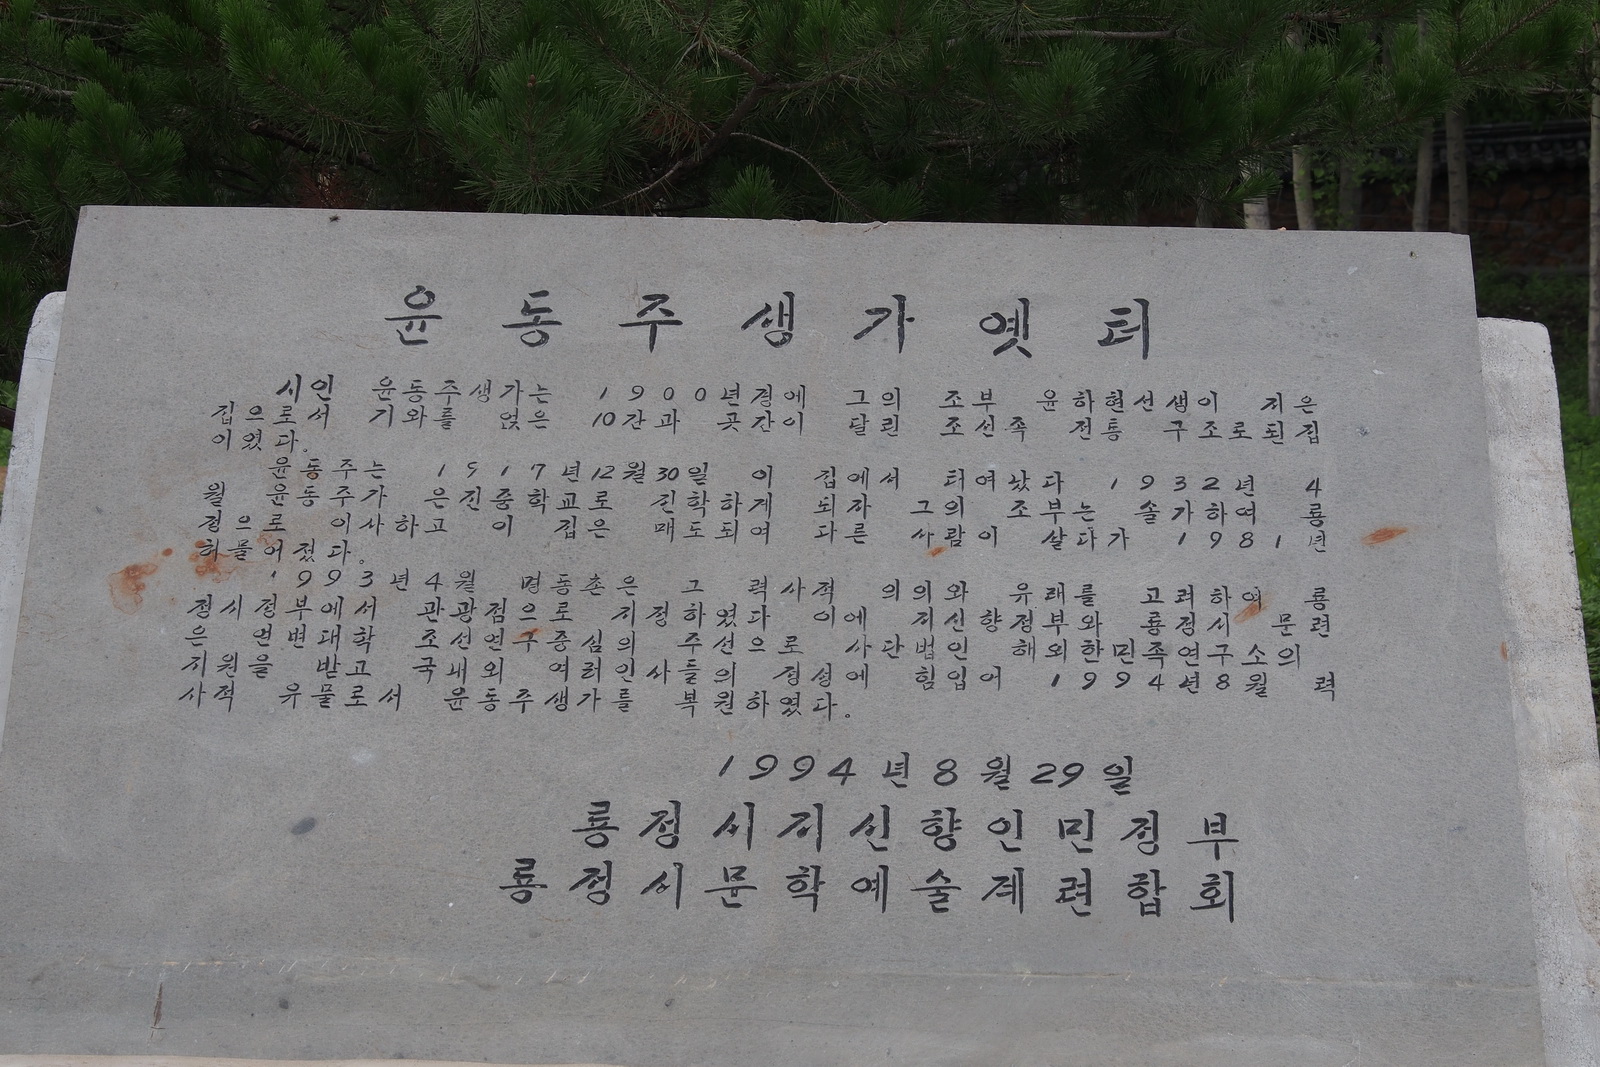 윤동주생가옛터
시인 윤동주생가는 1900년경에 그의 조부 윤하현선생이 지은
집으로서 기와를 얹은 10간과 곳간이 달린 조선족 전통 구조로된집
이였다.
윤동주는 1917년12월30일 이 집에서 터여났다 1932년 4
월 윤동주가 은진중학교로 진학하게 되자 그의 조부는 솔가하여 룡
정으로 이사하고 이 집은 매도되여 다른 사람이 살다가 1981년
허물어졌다.
1993년4월 명동촌은 그 력사적 의의와 유래를 고려하여 룡
정시정부에서 관광점으로 지정하였다 이에 지신향정부와 룡정시 문련
은 연변대학 조선연구중심의 주선으로 사단법인 해외한민족연구소의
지원을 받고 국내외 여러인사들의 정성에 힘입어 1994년8월 력
사적 유물로서 윤동주생가를 복원하였다.
1994년8월29일
룡정시지신향인민정부
룡정시문학예술계련합회